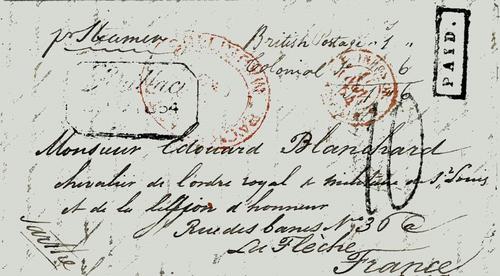 pr Steamer
British Postage 1 "
Colonial 6
1 6
PAID.
1854
10
Monsieur Edouard Blanchard
chevalier de l'ordre royal & militaire de St. Louis
et de la légion d'honneur
Rue des Canes No 36
La Flèche
France
Sarthe